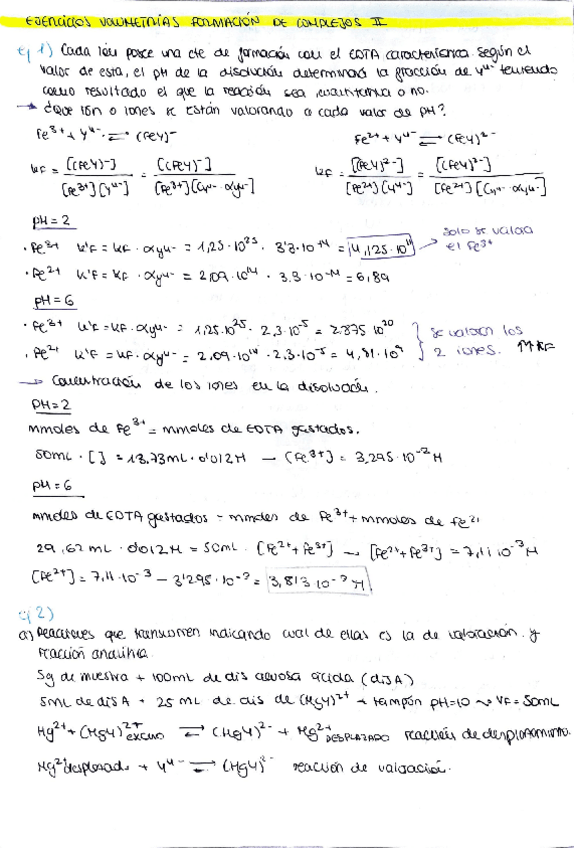 EJERCICIOS VOLUMETRÍAS FORMACIÓN DE COMPLEJOS II
ej 1) Cada ión posee una cte de formación con el EDTA característica. Según el
valor de esta, el pH de la disolución determinará la fracción de Y⁴⁻ teniendo
como resultado el que la reacción sea cuantitativa o no.
→ ¿Que ión o iones se están valorando a cada valor de pH?
Fe³⁺ + Y⁴⁻ ⇌ (FeY)⁻ Fe²⁺ + Y⁴⁻ ⇌ (FeY)²⁻
KF = [(FeY)⁻] / [Fe³⁺][Y⁴⁻] = [(FeY)⁻] / [Fe³⁺][CY⁴⁻·αY⁴⁻] KF = [(FeY)²⁻] / [Fe²⁺][Y⁴⁻] = [(FeY)²⁻] / [Fe²⁺][CY⁴⁻·αY⁴⁻]
pH = 2
· Fe³⁺ K'F = KF · αY⁴⁻ = 1,25·10²⁵ · 3'3·10⁻¹⁴ = 4,125·10¹¹ → Solo se valora el Fe³⁺
· Fe²⁺ K'F = KF · αY⁴⁻ = 2,09·10¹⁴ · 3.3·10⁻¹⁴ = 6,89
pH = 6
· Fe³⁺ K'F = KF·αY⁴⁻ = 1,25·10²⁵ · 2,3·10⁻⁵ = 2.875 10²⁰ } se valoran los
· Fe²⁺ K'F = KF·αY⁴⁻ = 2,09·10¹⁴ · 2.3·10⁻⁵ = 4,81·10⁹ 2 iones. ↑↑KF
→ Concentración de los iones en la disolución.
pH = 2
mmoles de Fe³⁺ = mmoles de EDTA gastados.
50mL · [ ] = 13.73mL · 0'012M → [Fe³⁺] = 3,295·10⁻³ M
pH = 6
mmoles de EDTA gastados = mmoles de Fe³⁺ + mmoles de Fe²⁺
29,62 mL · 0'012M = 50mL · [Fe²⁺ + Fe³⁺] → [Fe²⁺ + Fe³⁺] = 7,11 10⁻³ M
[Fe²⁺] = 7,11·10⁻³ - 3'295·10⁻³ = 3,813·10⁻³ M
ej 2)
a) Reacciones que transcurren indicando cual de ellas es la de valoración y
reacción analítica.
5g de muestra + 100mL de dis acuosa ácida (dis A)
5mL de dis A + 25 mL de dis de (MgY)²⁺ + tampón pH=10 → VF = 50mL
Hg²⁺ + (MgY)²⁺ EXCESO ⇌ (HgY)²⁻ + Mg²⁺ DESPLAZADO reacción de desplazamiento.
Mg²⁺ desplazado + Y⁴⁻ ⇌ (MgY)²⁻ reacción de valoración.